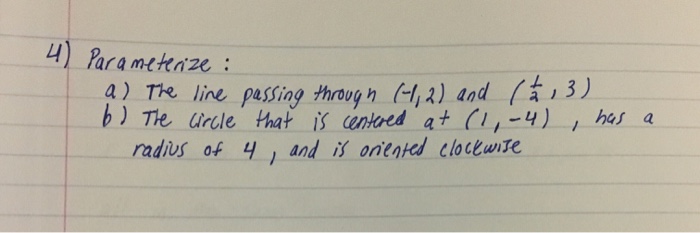 4) Parameterize :
a) The line passing through (-1, 2) and (1/2, 3)
b) The circle that is centered at (1, -4), has a
radius of 4, and is oriented clockwise